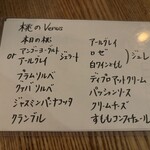 桃のVerus
本日の桃
or
アンゴーヨーグルト
アールグレイ
ジェラート
プラムソルベ
グァバソルベ
ジャスミンパンナコッタ
クランブル
アールグレイ
ロゼ
白ワインもも
ジュレ
ディプロマットクリーム
パッションソース
クリームチーズ
すももコンフィチュール